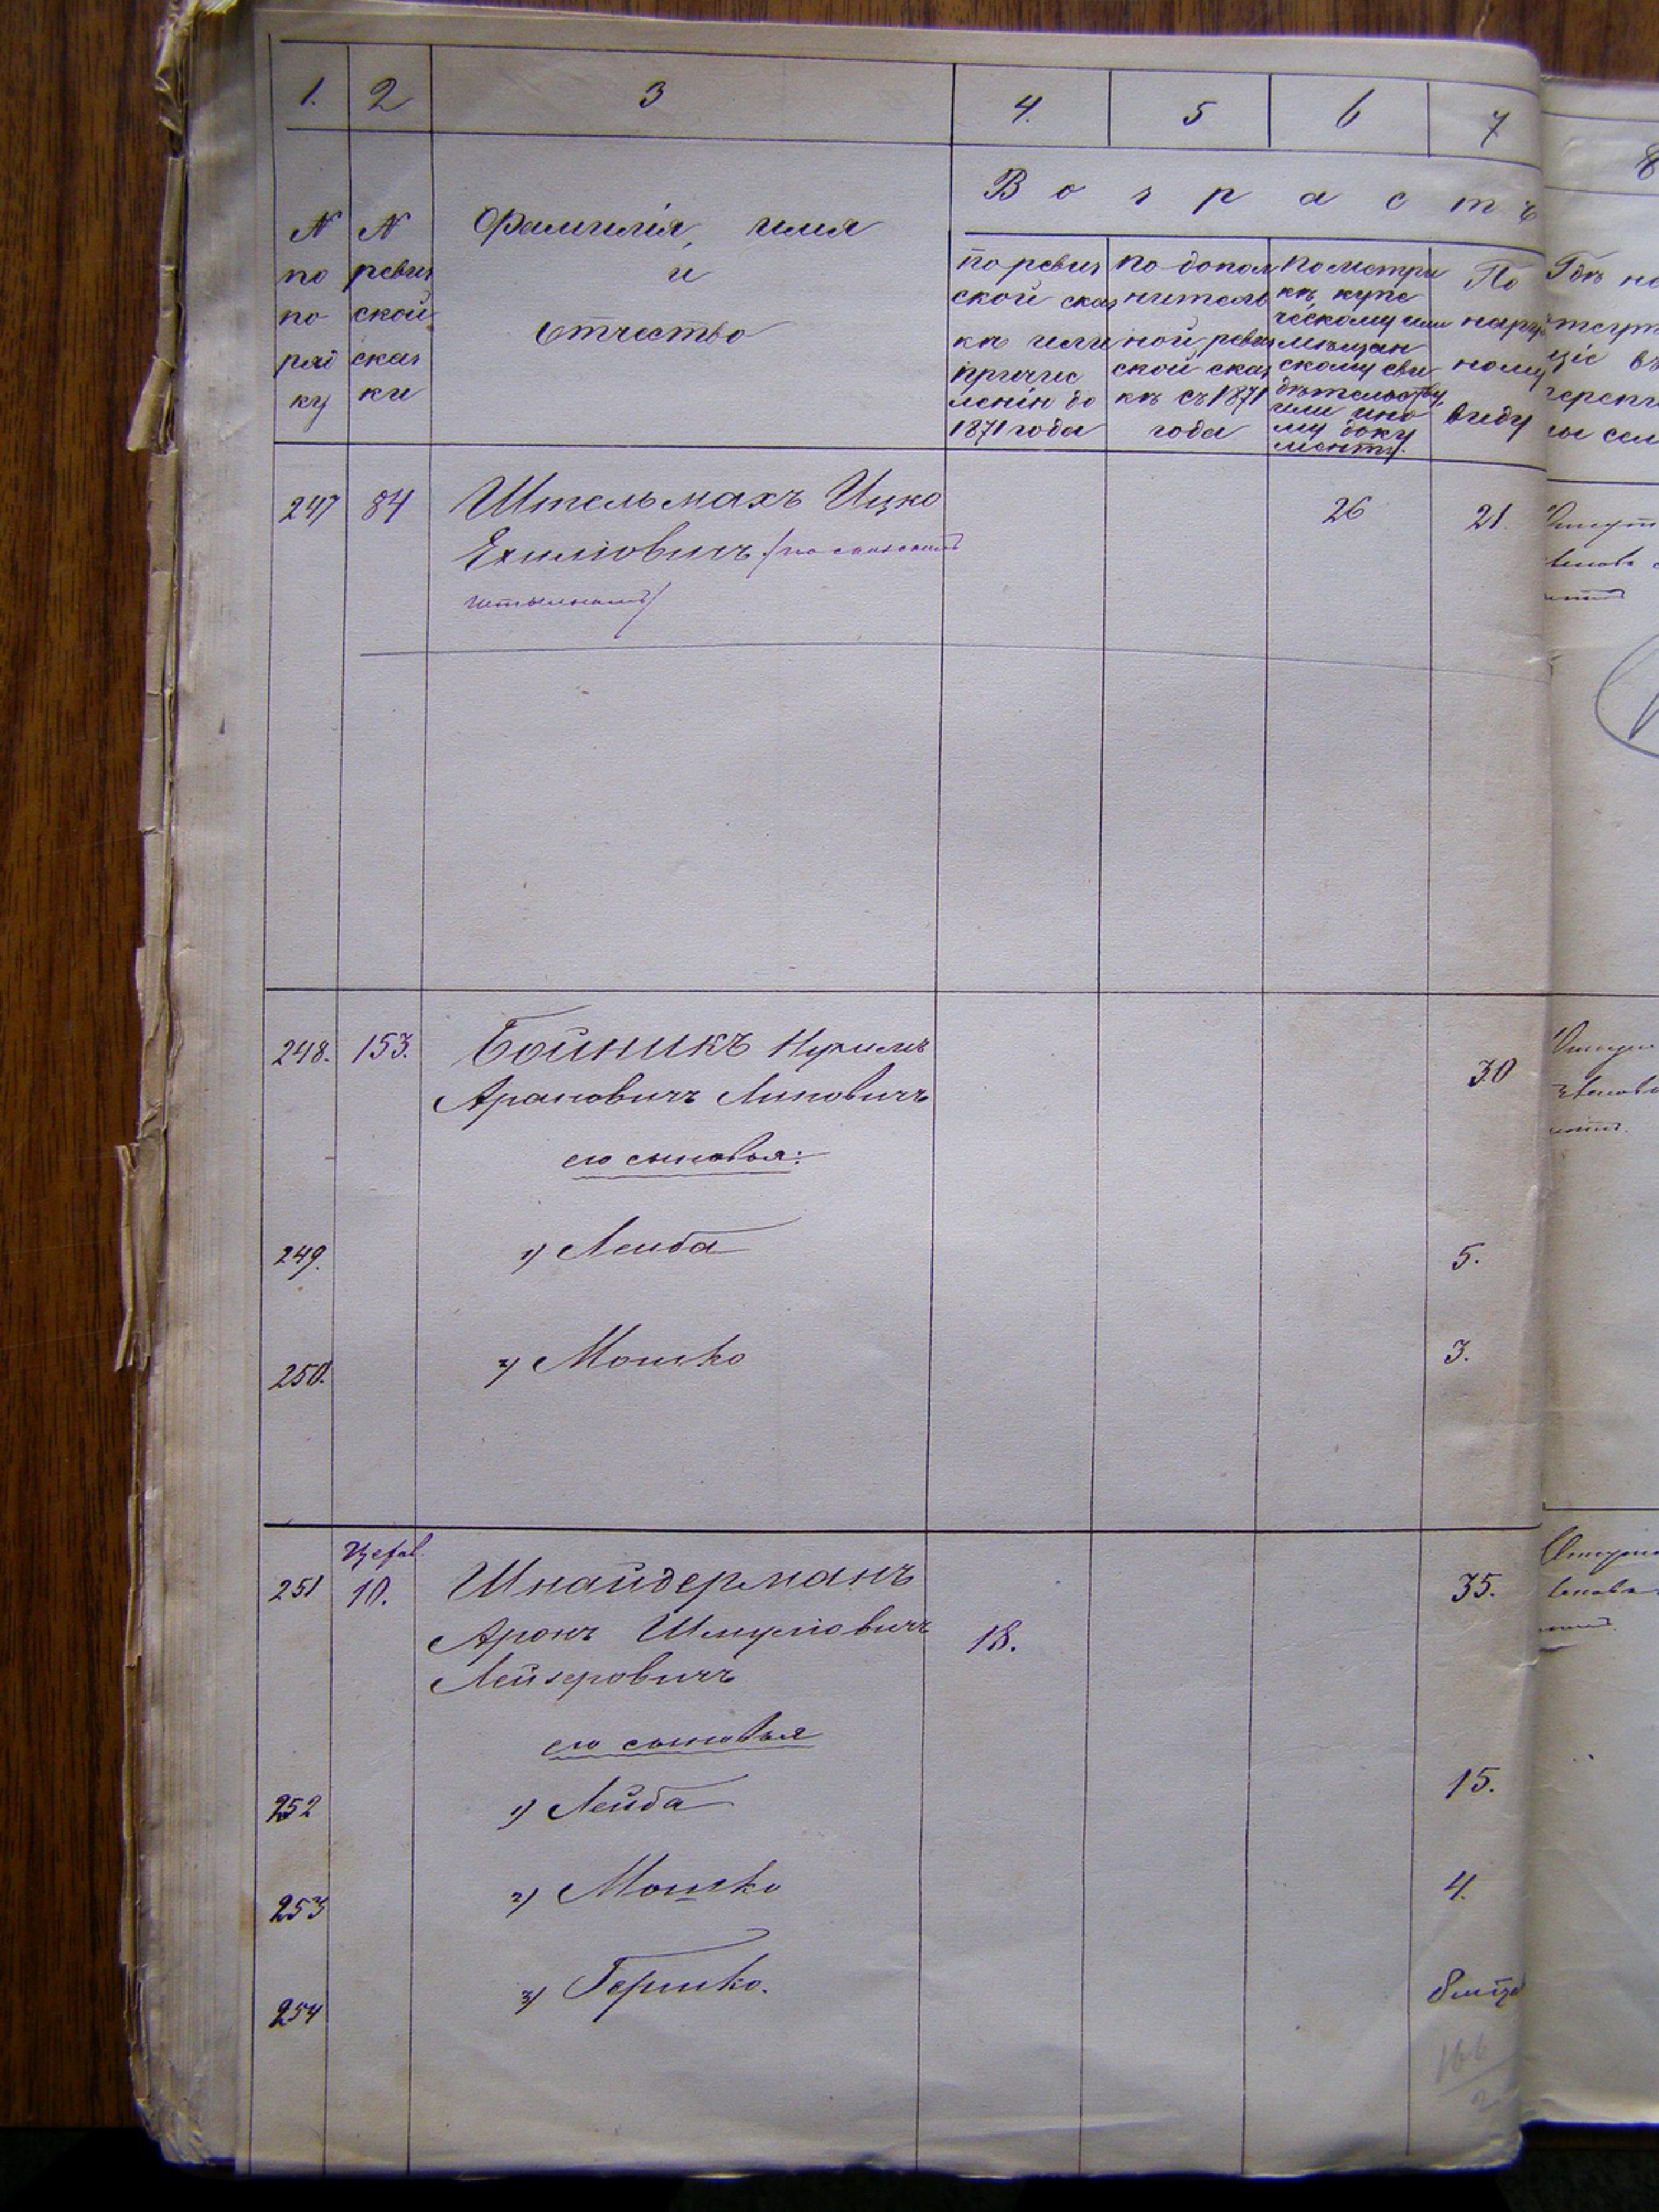 1. 2 3 4. 5 6 7 8
В о з р а с т ъ
N N Фамилія, имя
по ревиз и
по ской Отчество
ряд сказ
ку ки
по ревиз
ской сказ
кѣ или
причис
ленію до
1871 года
по допол
нитель
ной ревиз
ской сказ
кѣ съ 1871
года
По метри
кѣ, купе
ческому или
мѣщан
скому сви
дѣтельству,
или ино
му доку
менту.
По
наруж
ному
виду
247 84 Штельмахъ Ицко 26 21.
Ехилiовичъ
248. 153. Бойникъ 30
Арановичъ
его сыновья:
249. 1) Леиба 5.
250. 2) Мошко 3.
251 10. Шнайдерманъ 35.
Аронъ Шмуліовичъ 18.
Лейзеровичъ
его сыновья
252 1) Лейба 15.
253 2) Мошко 4.
254 3) Гершко. 8